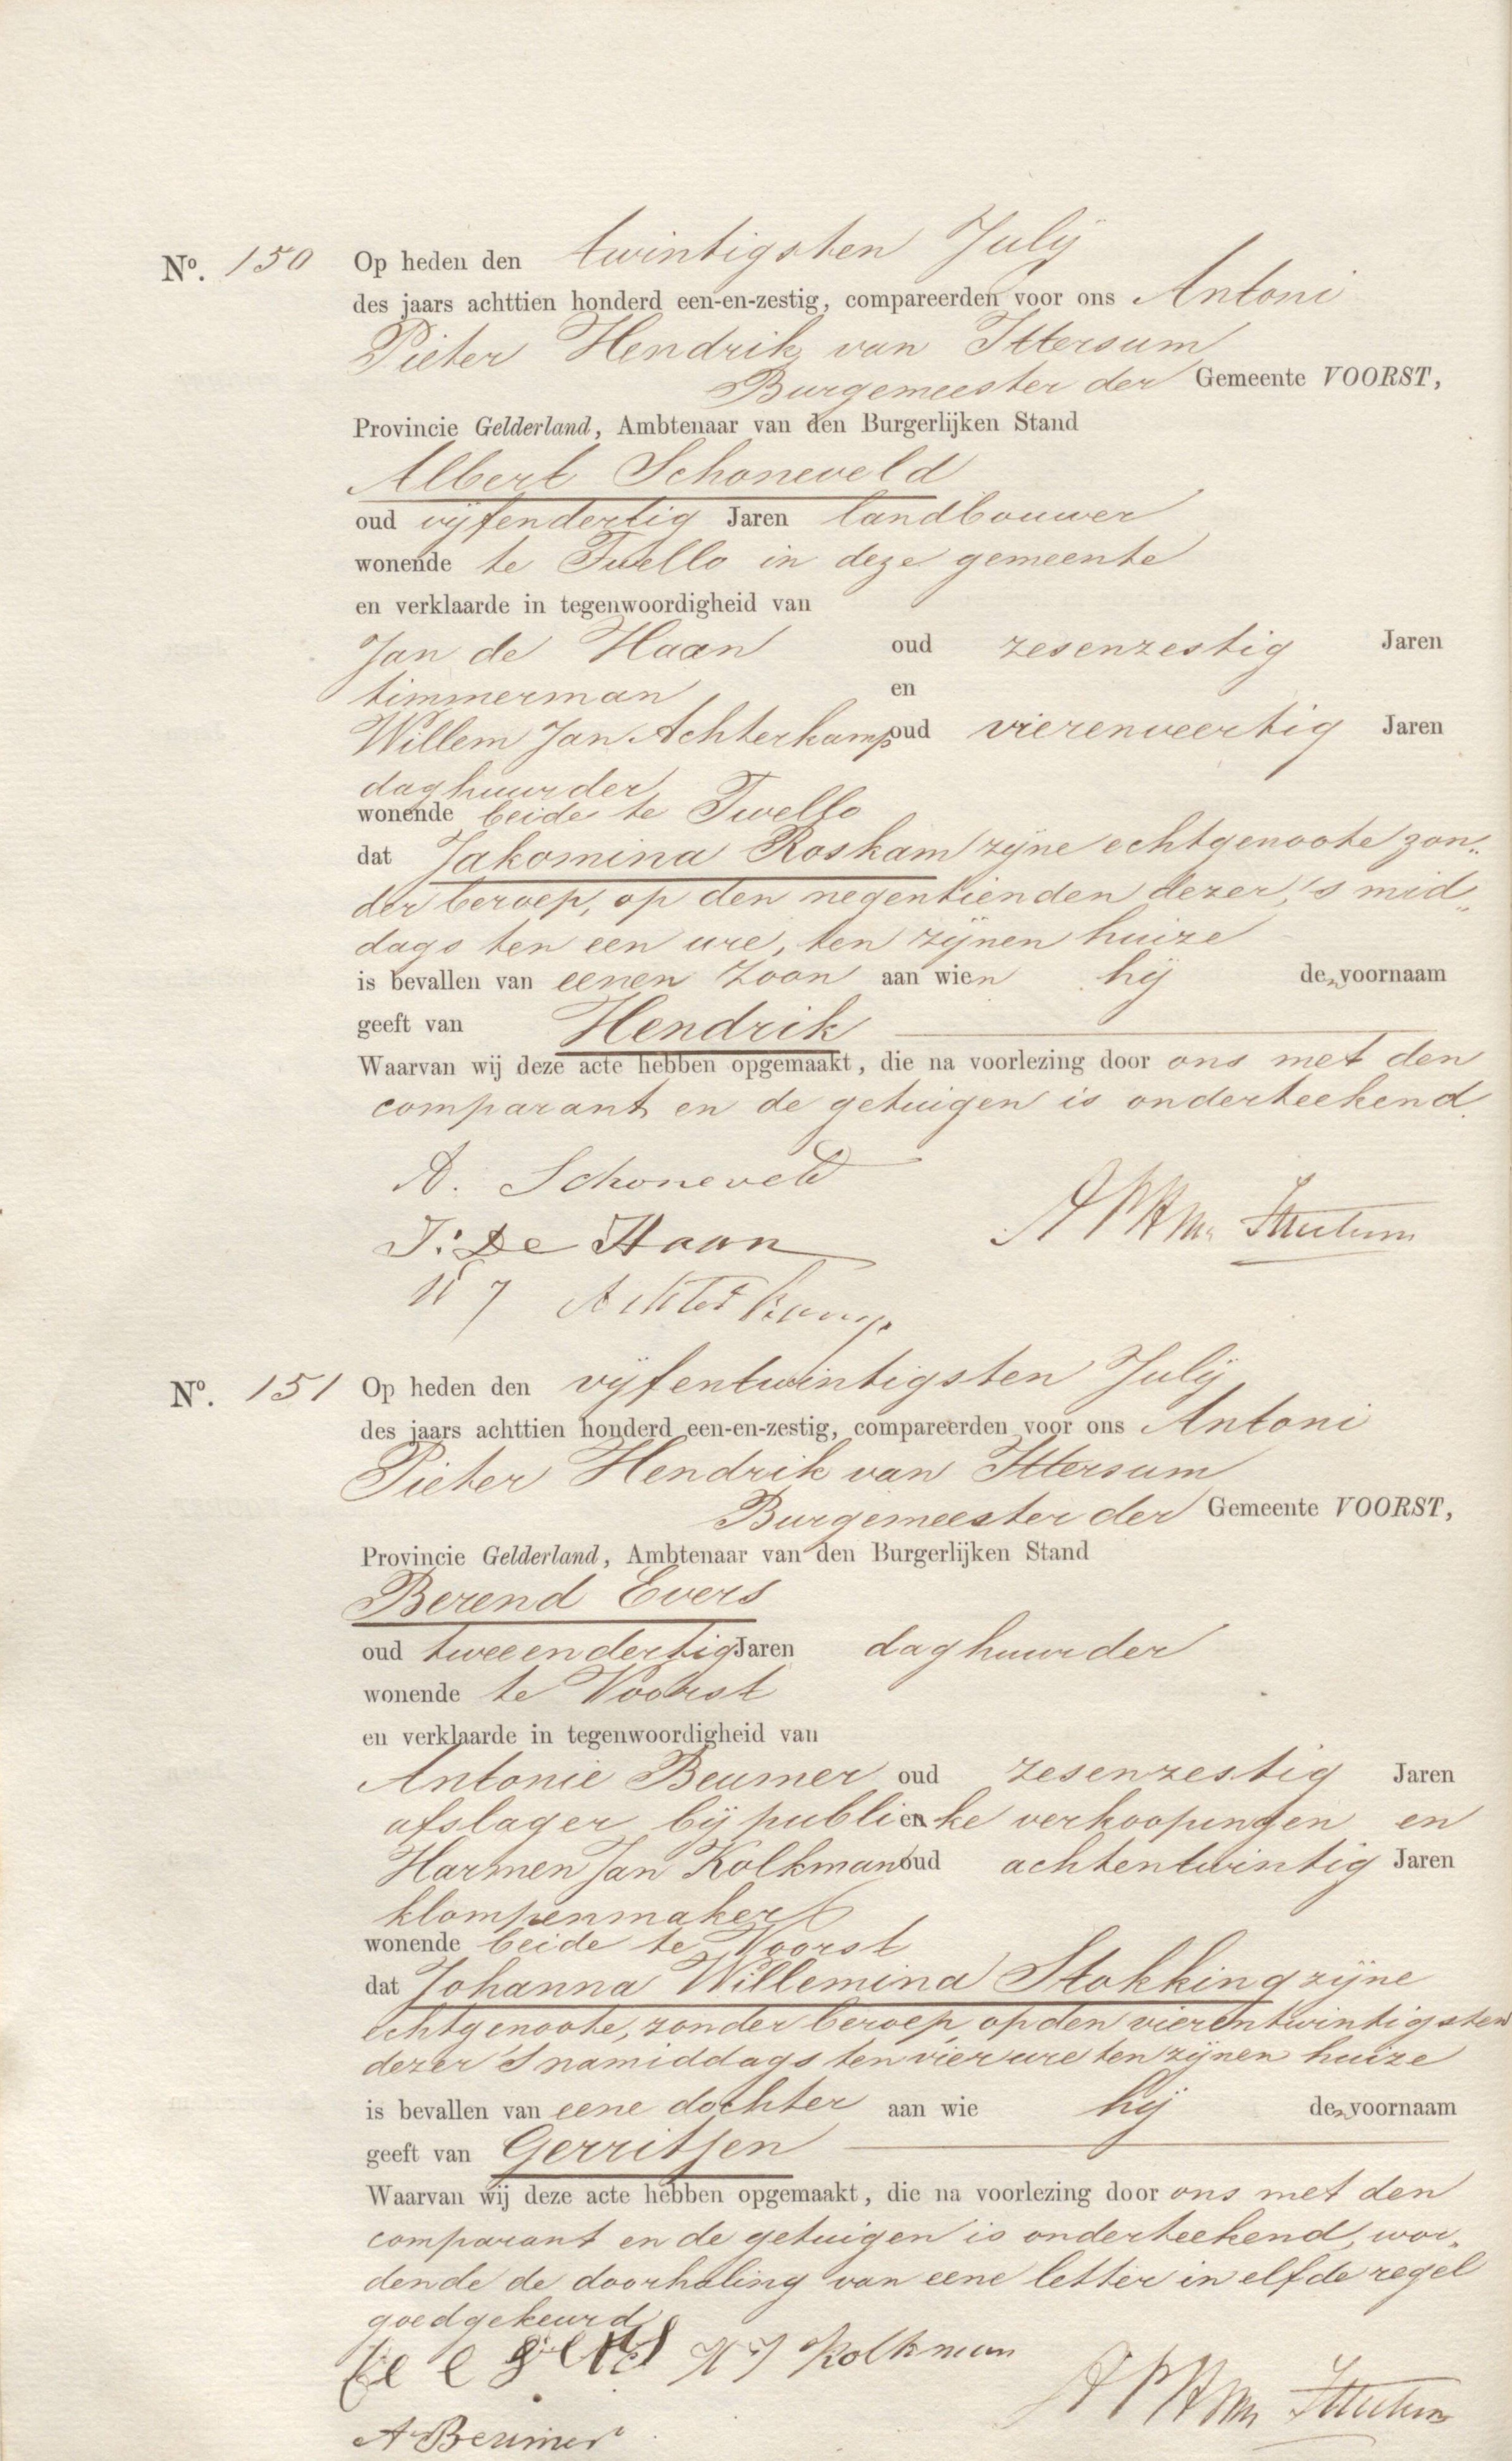 No. 150 Op heden den twintigsten July
des jaars achttien honderd een-en-zestig, compareerden voor ons Antoni
Pieter Hendrik van Ittersum
Burgemeester der Gemeente VOORST,
Provincie Gelderland, Ambtenaar van den Burgerlijken Stand
Albert Schoneveld
oud vijfendertig Jaren landbouwer
wonende te Twello in deze gemeente
en verklaarde in tegenwoordigheid van
Jan de Haan oud zesenzestig Jaren
timmerman en
Willem Jan Achterkamp oud vierenveertig Jaren
daghuurder
wonende beide te Twello
dat Jakomina Roskam zijne echtgenoote zon„
der beroep, op den negentienden dezer, 's mid„
dags ten een ure, ten zijnen huize
is bevallen van eenen zoon aan wien hij de voornaam
geeft van Hendrik
Waarvan wij deze acte hebben opgemaakt, die na voorlezing door ons met den
comparant en de getuigen is onderteekend.
A. Schoneveld
J: De Haan
W J Achterkamp
No. 151 Op heden den vijfentwintigsten July
des jaars achttien honderd een-en-zestig, compareerden voor ons Antoni
Pieter Hendrik van Ittersum
Burgemeester der Gemeente VOORST,
Provincie Gelderland, Ambtenaar van den Burgerlijken Stand
Berend Evers
oud tweeendertig Jaren daghuurder
wonende te Voorst
en verklaarde in tegenwoordigheid van
Antonie Beumer oud zesenzestig Jaren
afslager bij publieke verkoopingen en
Harmen Jan Kolkman oud achtentwintig Jaren
klompenmaker
wonende beide te Voorst
dat Johanna Willemina Stokking zijne
echtgenoote, zonder beroep, op den vierentwintigsten
dezer 's namiddags ten vier ure ten zijnen huize
is bevallen van eene dochter aan wie hij de voornaam
geeft van Gerritjen
Waarvan wij deze acte hebben opgemaakt, die na voorlezing door ons met den
comparant en de getuigen is onderteekend, wor„
dende de doorhaling van eene letter in elfde regel
goedgekeurd
H J Kolkman
A Beumer